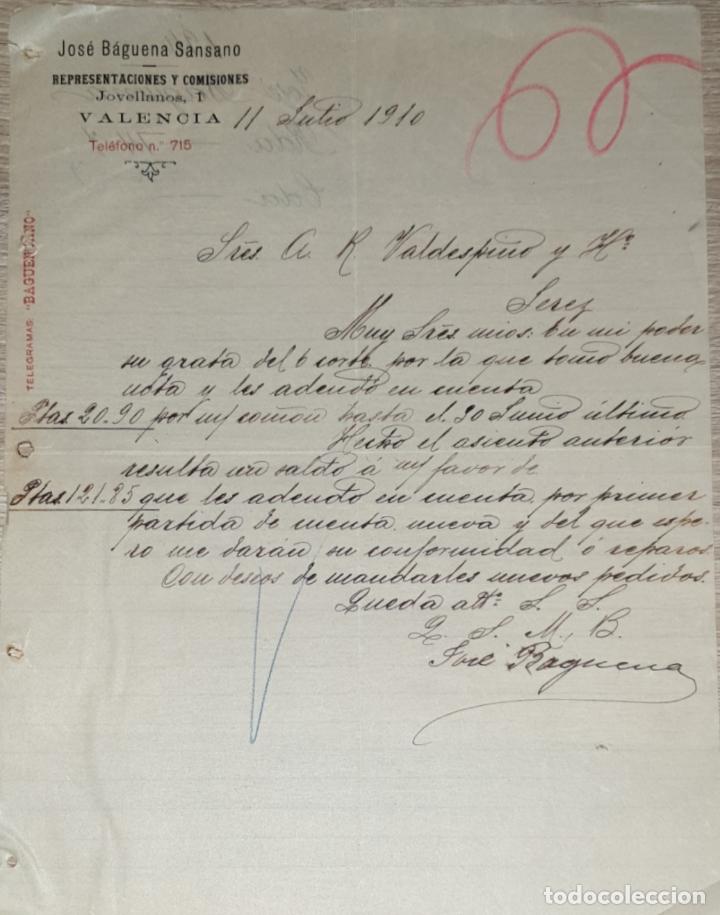 José Báguena Sansano
REPRESENTACIONES Y COMISIONES
Jovellanos, 1
VALENCIA 11 Julio 1910
Teléfono n.º 715
TELEGRAMAS: "BAGUENSANO"
Sres. A. R. Valdespino y Hº
Jerez
Muy Sres. mios: En mi poder
su grata del 6 corte. por la que tomo buena
nota y les adeudo en cuenta
Ptas. 20.90 por m/ comón hasta el 30 Junio último
Hecho el asiento anterior
resulta un saldo á m/ favor de
Ptas. 121.85 que les adeudo en cuenta por primer
partida de cuenta nueva y del que espe-
ro me darán su conformidad ó reparos.
Con deseos de mandarles nuevos pedidos.
Queda attº. S. S.
Q. S. M. B.
José Baguena
todocoleccion